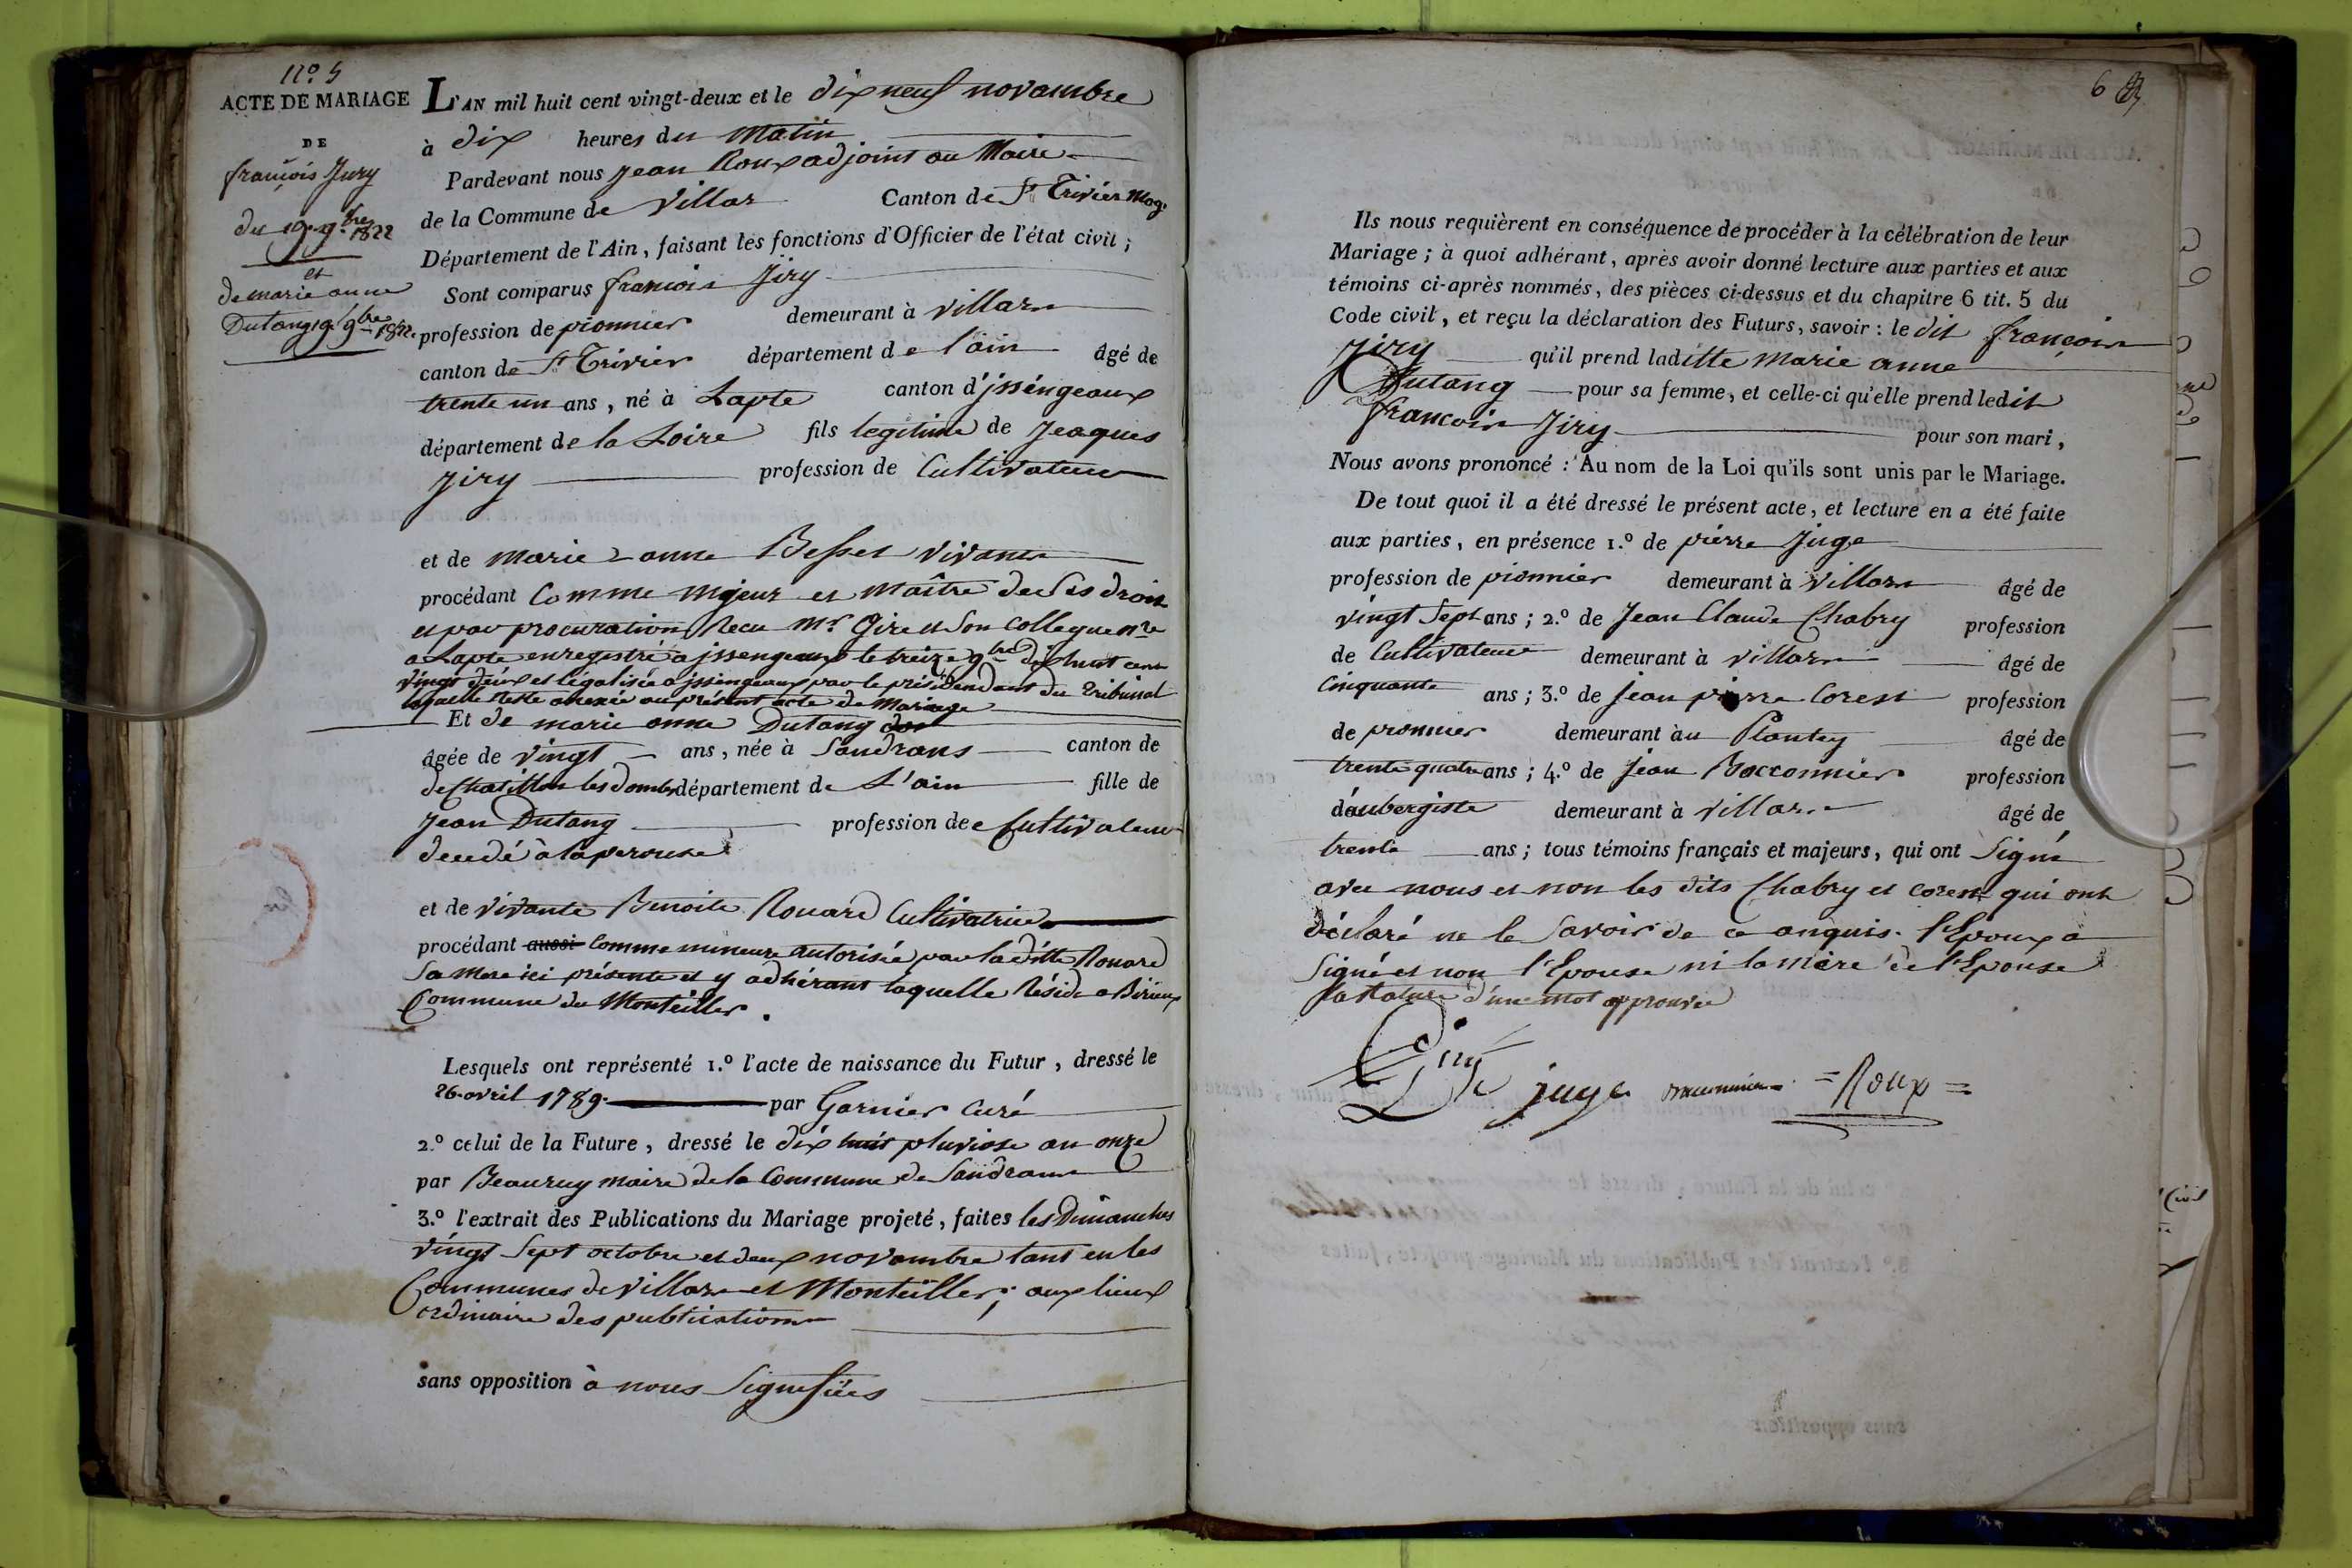 n.o 5
ACTE DE MARIAGE
DE
françois Jury
du 19 9.bre 1822
et
de marie anne
Dutang 19 9bre 1822.
L'AN mil huit cent vingt-deux et le dix neuf novambre
à dix heures du matin
Pardevant nous Jean Roux adjoint au Maire
de la Commune de Villar Canton de St Trivier Mog.
Département de l'Ain, faisant les fonctions d'Officier de l'état civil ;
Sont comparus francois Jiry
profession de pionnier demeurant à villars
canton de St Trivier département de l'ain âgé de
trente un ans, né à Lapte canton d'jssengeaux
département de la Loire fils legitime de Jeaques
Jiry profession de Cultivateur
et de marie anne Besset vivante
procédant Comme majeur et maître de ses droits
et par procuration Recu Mr Gire et Son Collegue nre
a Lapte enregistré a jssengeaux le treize 9bre dix huit cent
vingt deux et légalisée a jssengeaux par le président du Tribunal
laquelle reste anexée au présent acte de Mariage
Et de marie anne Dutang
âgée de vingt ans, née à Sandrans canton de
de Chatillon les dombes département de L'ain fille de
Jean Dutang profession de Cultivateur
decedé à laperouse
et de vivante Benoite Rouard Cultivatrice
procédant aussi Comme mineure autorisée par la ditte Rouard
Sa Mere ici présente et y adhérant laquelle Réside a Birieux
Commune du Montellier.
Lesquels ont représenté 1.º l'acte de naissance du Futur, dressé le
26 avril 1789. par Garnier Curé
2.º celui de la Future, dressé le dix huit pluviose an onze
par Beauruy maire de la Commune de Sandrans
3.º l'extrait des Publications du Mariage projeté, faites les Dimanches
vingt Sept octobre et deux novambre tant en les
Communes de Villars et Montellier ; aux lieux
ordinaire des publications
sans opposition à nous Signifiées
6
Ils nous requièrent en conséquence de procéder à la célébration de leur
Mariage ; à quoi adhérant, après avoir donné lecture aux parties et aux
témoins ci-après nommés, des pièces ci-dessus et du chapitre 6 tit. 5 du
Code civil, et reçu la déclaration des Futurs, savoir : le dit françois
Jiry qu'il prend laditte marie anne
Dutang pour sa femme, et celle-ci qu'elle prend ledit
francois Jiry pour son mari,
Nous avons prononcé : Au nom de la Loi qu'ils sont unis par le Mariage.
De tout quoi il a été dressé le présent acte, et lecture en a été faite
aux parties, en présence 1.º de pierre Juge
profession de pionnier demeurant à villars âgé de
vingt Sept ans ; 2.º de Jean Claude Chabry profession
de Cultivateur demeurant à villars âgé de
Cinquante ans ; 3.º de Jean pierre Corent profession
de pionnier demeurant àu Plantay âgé de
trente quatre ans ; 4.º de Jean Bocconnier profession
d'aubergiste demeurant à villars âgé de
trente ans ; tous témoins français et majeurs, qui ont Signé
avec nous et non les dits Chabry et Corent qui ont
déclaré ne le Savoir de ce anquis. l'Epoux a
Signé et non l'Epouse ni la mère de l'Epouse
la Rature d'une mot approuvée
juge = Roux =